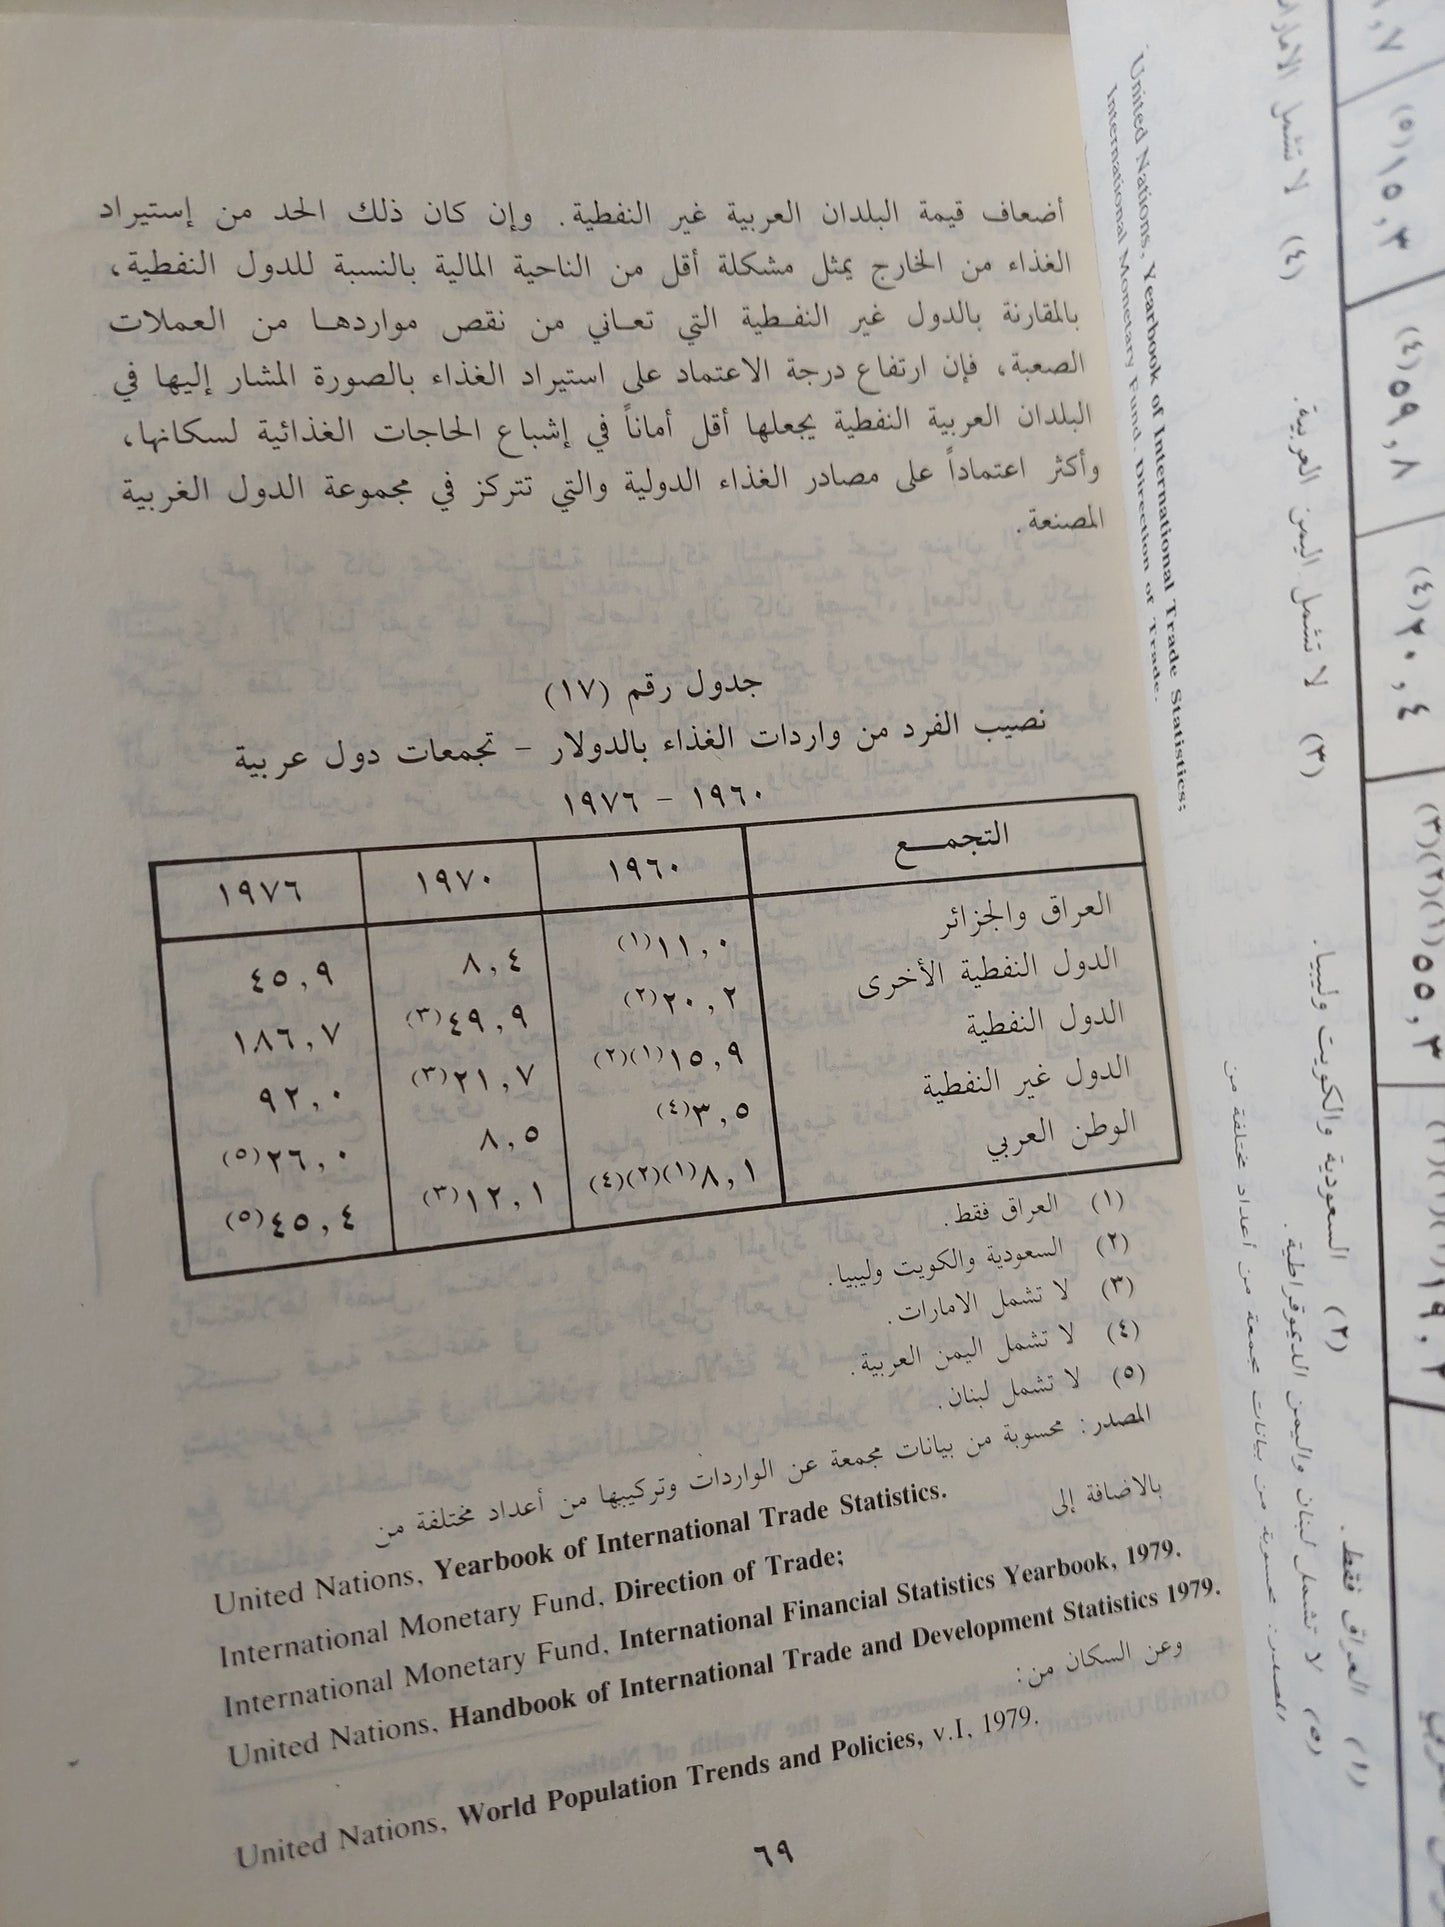 أضعاف قيمة البلدان العربية غير النفطية. وإن كان ذلك الحد من إستيراد
الغذاء من الخارج يمثل مشكلة أقل من الناحية المالية بالنسبة للدول النفطية،
بالمقارنة بالدول غير النفطية التي تعاني من نقص مواردها من العملات
الصعبة، فإن ارتفاع درجة الاعتماد على استيراد الغذاء بالصورة المشار إليها في
البلدان العربية النفطية يجعلها أقل أماناً في إشباع الحاجات الغذائية لسكانها،
وأكثر اعتماداً على مصادر الغذاء الدولية والتي تتركز في مجموعة الدول الغربية
المصنعة.
جدول رقم (١٧)
نصيب الفرد من واردات الغذاء بالدولار - تجمعات دول عربية
١٩٦٠ - ١٩٧٦
التجمع ١٩٦٠ ١٩٧٠ ١٩٧٦
العراق والجزائر ١١,٠(١) ٨,٤ ٤٥,٩
الدول النفطية الأخرى ٢٠,٢(٢) ٤٩,٩(٣) ١٨٦,٧
الدول النفطية ١٥,٩(١)(٢) ٢١,٧(٣) ٩٢,٠
الدول غير النفطية ٣,٥(٤) ٨,٥ ٢٦,٠(٥)
الوطن العربي ٨,١(١)(٢)(٤) ١٢,١(٣) ٤٥,٤(٥)
(١) العراق فقط.
(٢) السعودية والكويت وليبيا.
(٣) لا تشمل الامارات.
(٤) لا تشمل اليمن العربية.
(٥) لا تشمل لبنان.
المصدر: محسوبة من بيانات مجمعة عن الواردات وتركيبها من أعداد مختلفة من
United Nations, Yearbook of International Trade Statistics.
بالاضافة إلى
International Monetary Fund, Direction of Trade;
International Monetary Fund, International Financial Statistics Yearbook, 1979.
United Nations, Handbook of International Trade and Development Statistics 1979.
وعن السكان من:
United Nations, World Population Trends and Policies, v.I, 1979.
٦٩
١٥,٣(٥)
٥٩,٨(٤)
٢٠,٤(٤)
٥٥,٣(١)(٢)(٣)
(١) العراق فقط.
(٢) السعودية والكويت وليبيا.
(٣) لا تشمل اليمن العربية.
(٤) لا تشمل
(٥) لا تشمل لبنان واليمن الديموقراطية.
المصدر: محسوبة من بيانات مجمعة من أعداد مختلفة من
United Nations, Yearbook of International Trade Statistics;
International Monetary Fund. Direction of Trade.